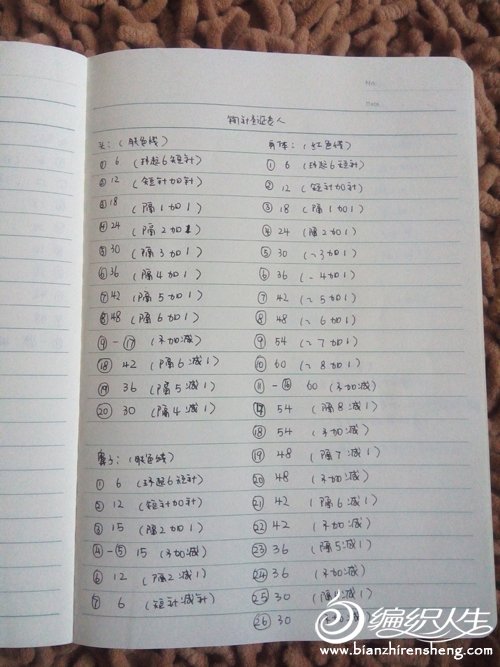 No.
Date
钩针圣诞老人
头：（肤色线）
① 6 （环起6短针）
② 12 （短针加针）
③ 18 （隔1加1）
④ 24 （隔2加1）
⑤ 30 （隔3加1）
⑥ 36 （隔4加1）
⑦ 42 （隔5加1）
⑧ 48 （隔6加1）
⑨-⑰ （不加减）
⑱ 42 （隔6减1）
⑲ 36 （隔5减1）
⑳ 30 （隔4减1）
鼻子：（肤色线）
① 6 （环起6短针）
② 12 （短针加针）
③ 15 （隔2加1）
④-⑤ 15 （不加减）
⑥ 12 （隔2减1）
⑦ 6 （短针减针）
身体：（红色线）
① 6 （环起6短针）
② 12 （短针加针）
③ 18 （隔1加1）
④ 24 （隔2加1）
⑤ 30 （~3加1）
⑥ 36 （~4加1）
⑦ 42 （~5加1）
⑧ 48 （~6加1）
⑨ 54 （~7加1）
⑩ 60 （~8加1）
⑪-⑯ 60 （不加减）
⑰ 54 （隔8减1）
⑱ 54 （不加减）
⑲ 48 （隔7减1）
⑳ 48 （不加减）
㉑ 42 （隔6减1）
㉒ 42 （不加减）
㉓ 36 （隔5减1）
㉔ 36 （不加减）
㉕ 30 （隔4减1）
㉖ 30 （不加减）
编织人生
www.bianzhirensheng.com